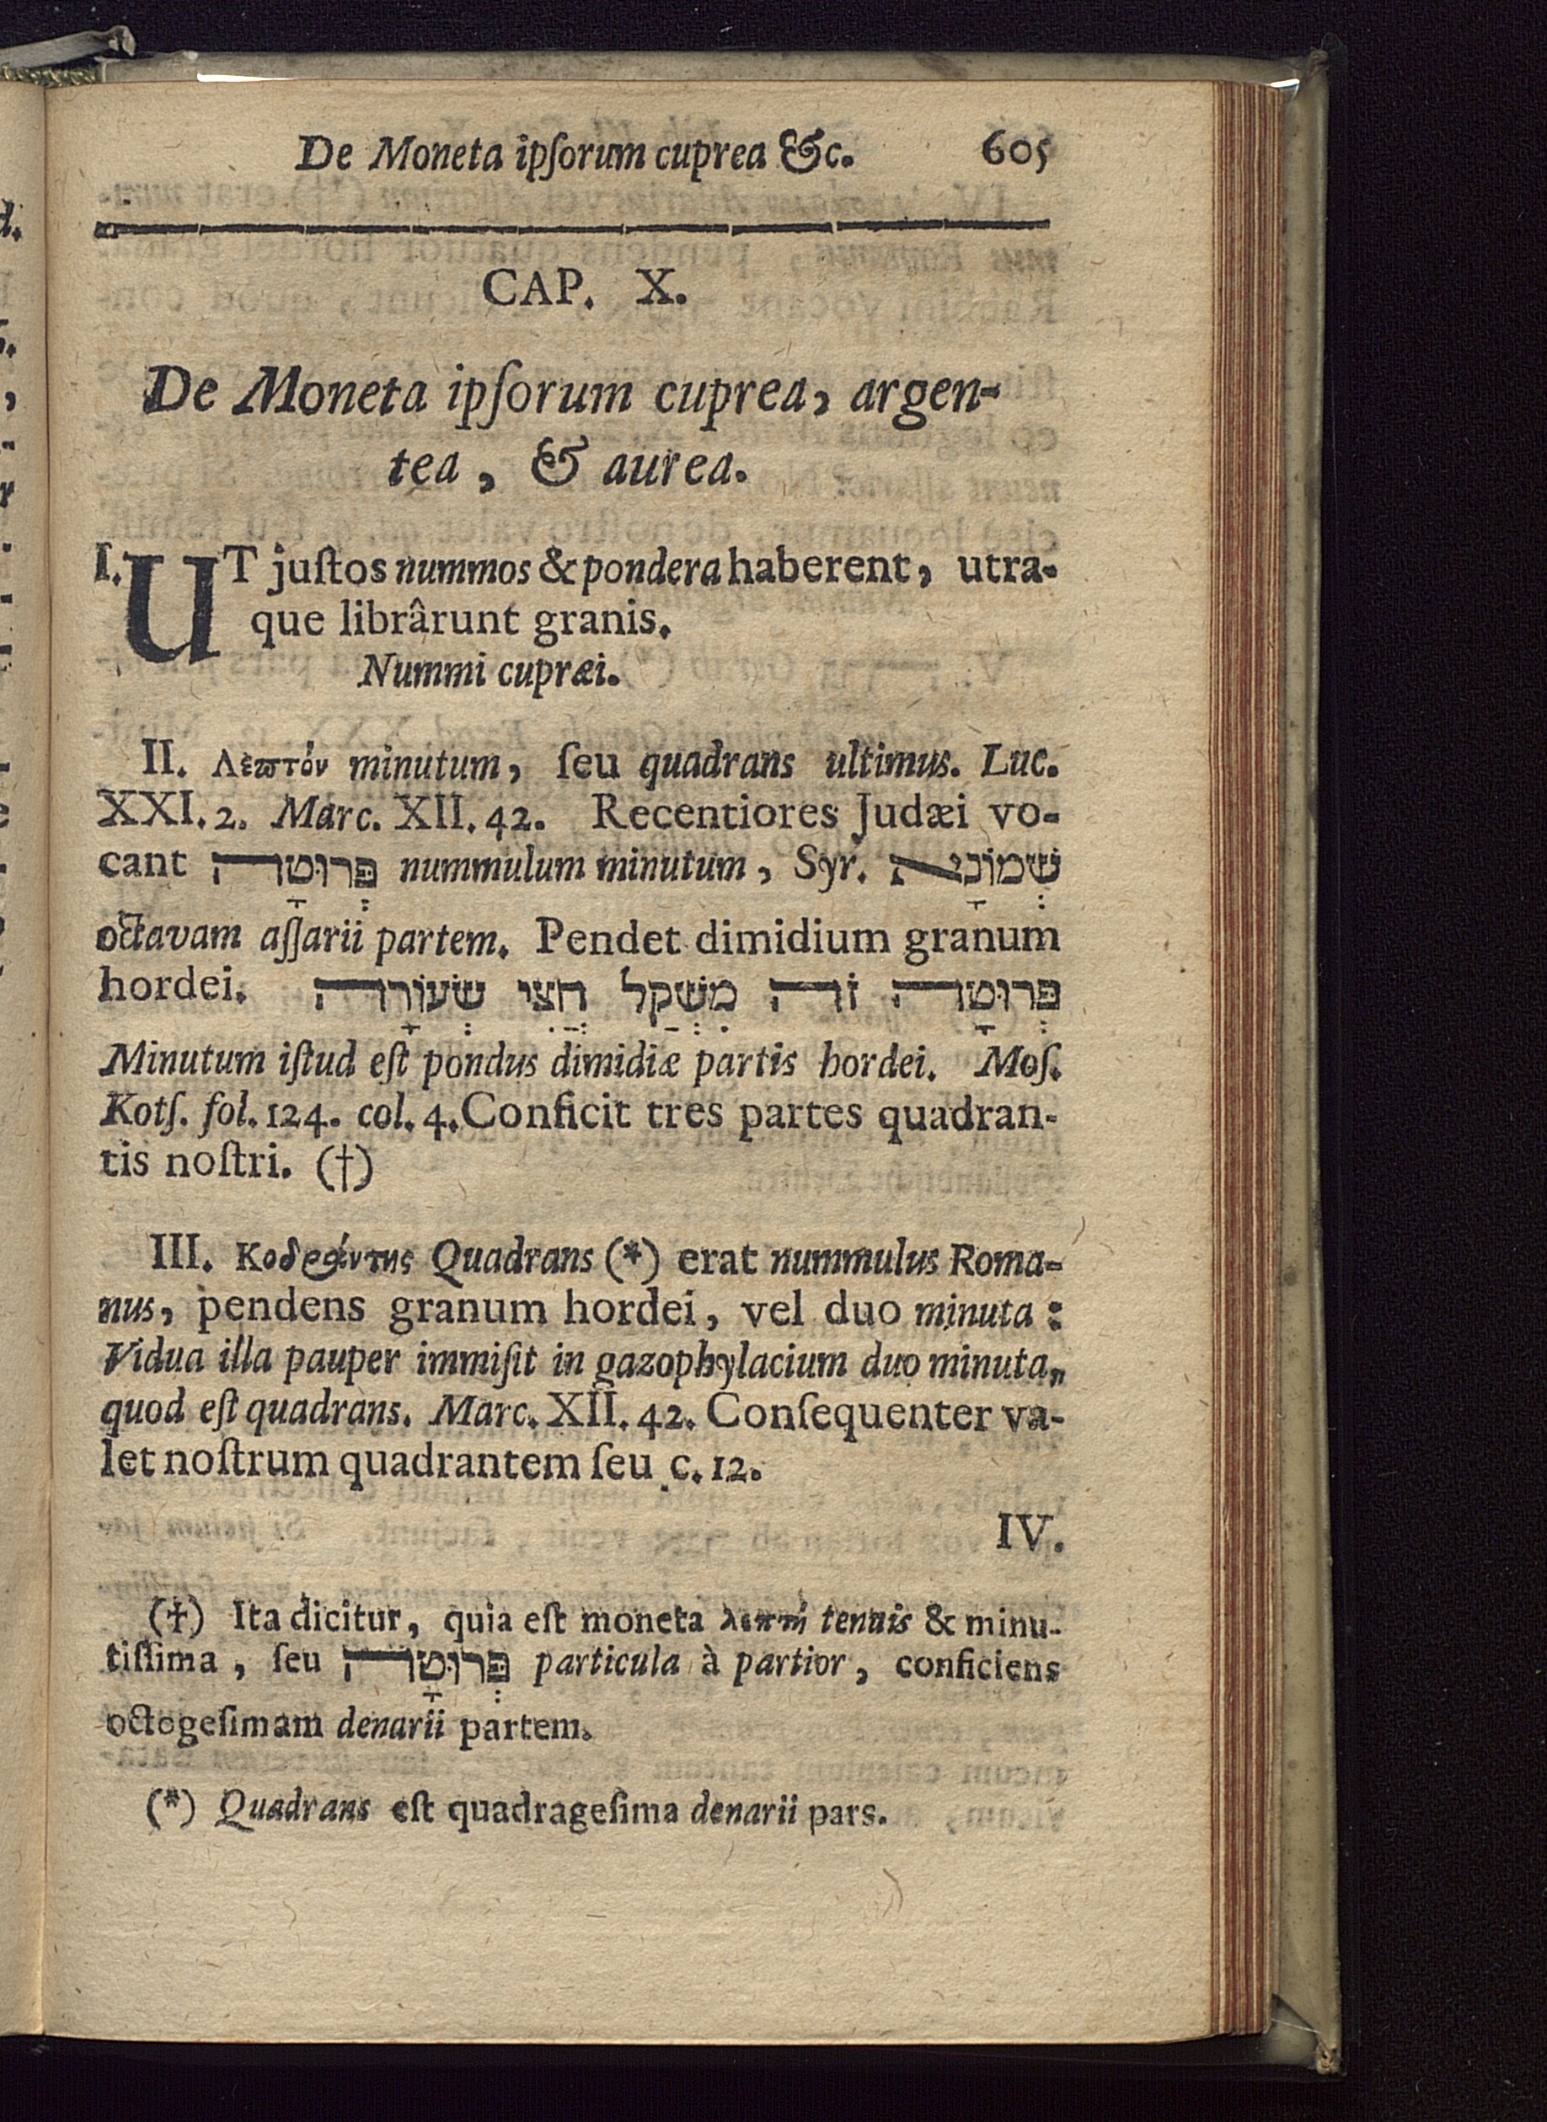 De Moneta ipſorum cuprea &c. 605
CAP. X.
De Moneta ipſorum cuprea, argen-
tea, & aurea.
I. UT juſtos nummos & pondera haberent, utra-
que librârunt granis.
Nummi cupræi.
II. Λεϖτόν minutum, ſeu quadrans ultimus. Luc.
XXI. 2. Marc. XII. 42. Recentiores Judæi vo-
cant פְּרוּטָה nummulum minutum, Syr. שְׁמוֹנָא
octavam aſſarii partem. Pendet dimidium granum
hordei. פְּרוּטָה זֹה מִשְׁקַל חֲצִי שְׂעוֹרָה
Minutum iſtud eſt pondus dimidiæ partis hordei. Moſ.
Kotſ. fol. 124. col. 4. Conficit tres partes quadran-
tis noſtri. (†)
III. Κοδράντης Quadrans (*) erat nummulus Roma-
nus, pendens granum hordei, vel duo minuta:
Vidua illa pauper immiſit in gazophylacium duo minuta,
quod eſt quadrans. Marc. XII. 42. Conſequenter va-
let noſtrum quadrantem ſeu c. 12.
IV.
(†) Ita dicitur, quia eſt moneta λεπτὴ tenuis & minu-
tiſſima, ſeu פְּרוּטָה particula à partior, conficiens
octogeſimam denarii partem.
(*) Quadrans eſt quadrageſima denarii pars.